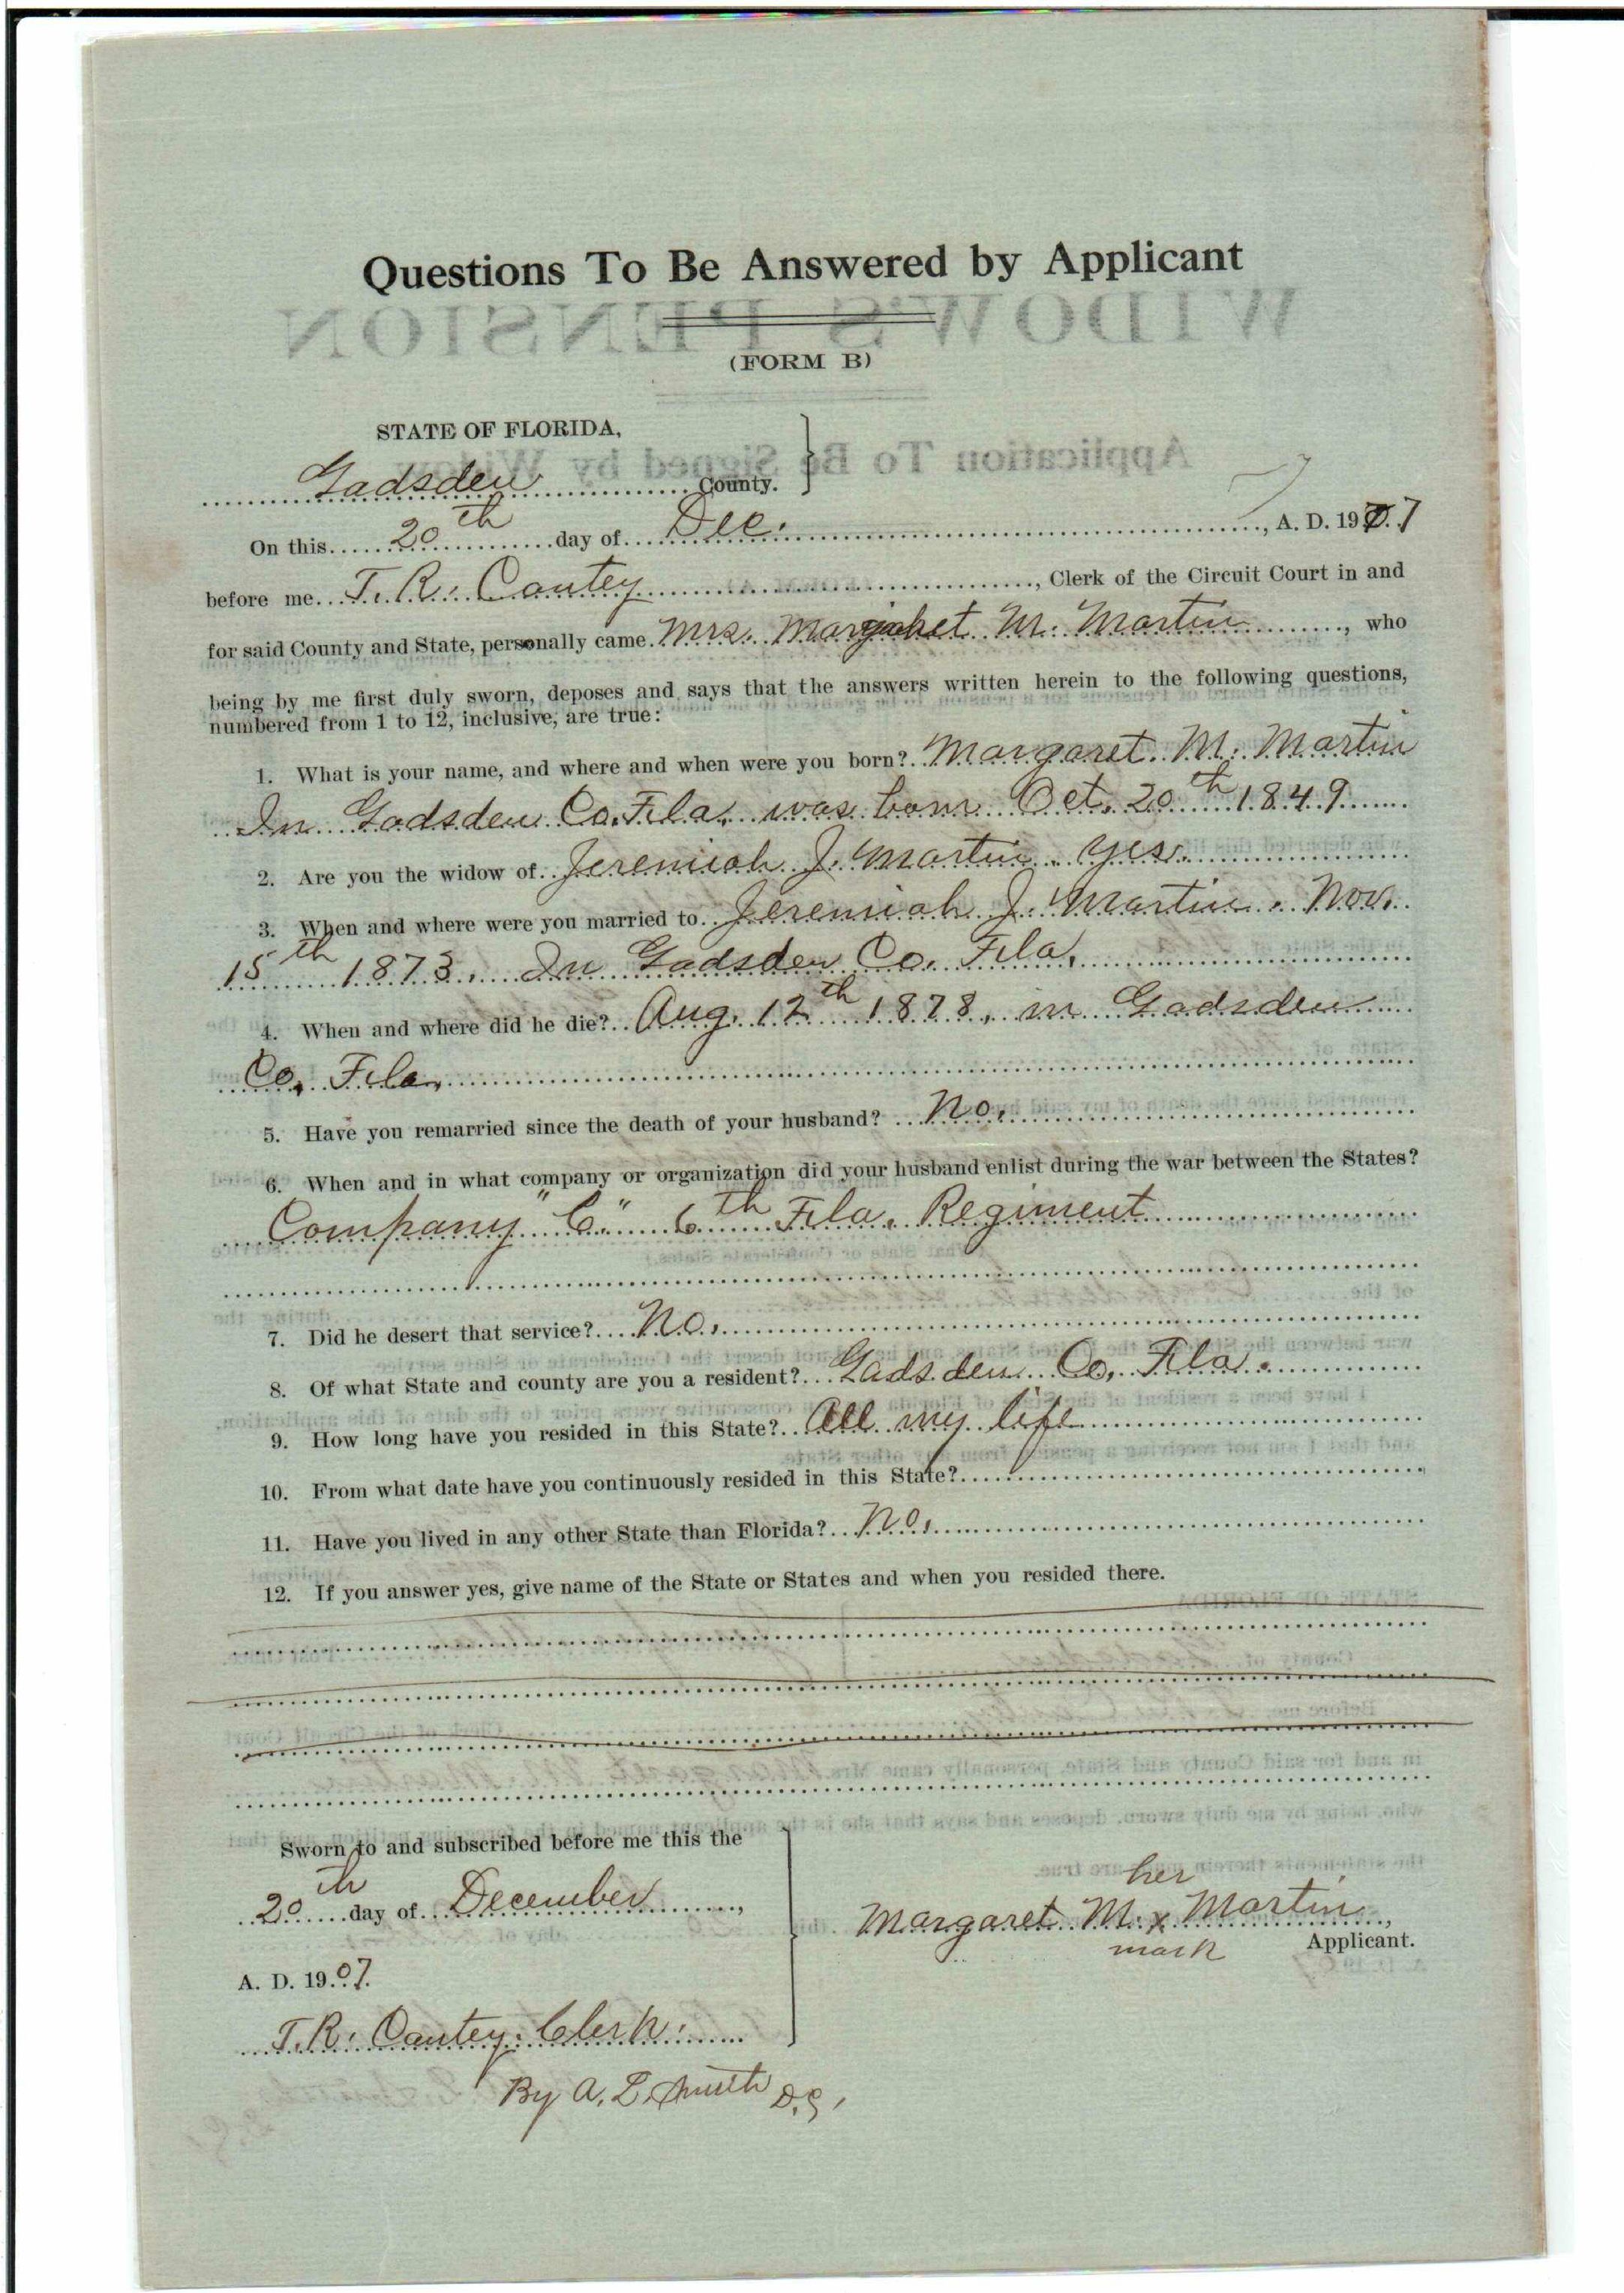 Questions To Be Answered by Applicant
(FORM B)
STATE OF FLORIDA,
Gadsden County.
On this 20th day of Dec. , A. D. 1907
before me T. R. Cantey , Clerk of the Circuit Court in and
for said County and State, personally came Mrs. Margaret M. Martin , who
being by me first duly sworn, deposes and says that the answers written herein to the following questions,
numbered from 1 to 12, inclusive, are true:
1. What is your name, and where and when were you born? Margaret M. Martin
In Gadsden Co. Fla. was born Oct. 20th 1849
2. Are you the widow of Jeremiah J. Martin. Yes.
3. When and where were you married to Jeremiah J. Martin. Nov.
15th 1873. In Gadsden Co. Fla.
4. When and where did he die? Aug. 12th 1878, in Gadsden
Co. Fla.
5. Have you remarried since the death of your husband? No.
6. When and in what company or organization did your husband enlist during the war between the States?
Company "C." 6th Fla. Regiment
7. Did he desert that service? No.
8. Of what State and county are you a resident? Gadsden Co. Fla.
9. How long have you resided in this State? All my life
10. From what date have you continuously resided in this State?
11. Have you lived in any other State than Florida? No.
12. If you answer yes, give name of the State or States and when you resided there.
Sworn to and subscribed before me this the
20th day of December ,
A. D. 1907.
T. R. Cantey. Clerk.
By A. L. Smith D.C.
her
Margaret M. x Martin ,
mark Applicant.